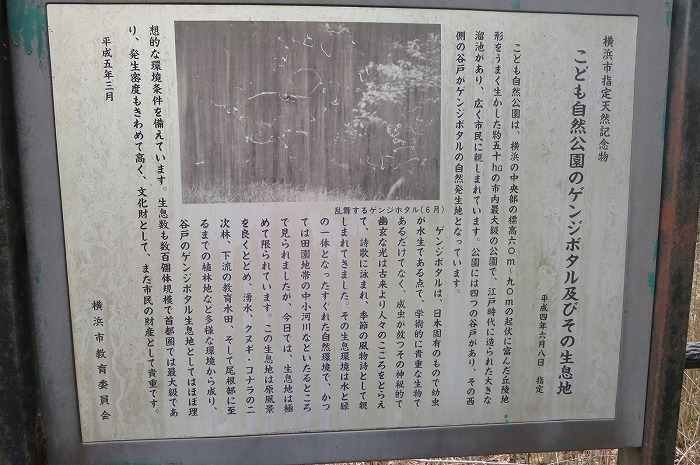 横浜市指定天然記念物
こども自然公園のゲンジボタル及びその生息地
平成四年六月八日 指定
こども自然公園は、横浜の中央部の標高六〇m〜九〇mの起伏に富んだ丘陵地
形をうまく生かした約五十haの市内最大級の公園で、江戸時代に造られた大きな
溜池があり、広く市民に親しまれています。公園には四つの谷戸があり、その西
側の谷戸がゲンジボタルの自然発生地となっています。
乱舞するゲンジホタル(6月)
ゲンジボタルは、日本固有のもので幼虫
が水生である点で、学術的に貴重な生物で
あるだけでなく、成虫が放つその神秘的で
幽玄な光は古来より人々のこころをとらえ
て、詩歌に詠まれ、季節の風物詩として親
しまれてきました。その生息環境は水と緑
の一体となったすぐれた自然環境で、かつ
ては田園地帯の中小河川などいたるところ
で見られましたが、今日では、生息地は極
めて限られています。この生息地は原風景
を良くとどめ、湧水、クヌギ・コナラの二
次林、下流の教育水田、そして尾根部に至
るまでの植林地など多様な環境から成り、
谷戸のゲンジボタル生息地としてはほぼ理
想的な環境条件を備えています。生息数も数百個体規模で首都圏では最大級であ
り、発生密度もきわめて高く、文化財として、また市民の財産として貴重です。
平成五年三月
横浜市教育委員会